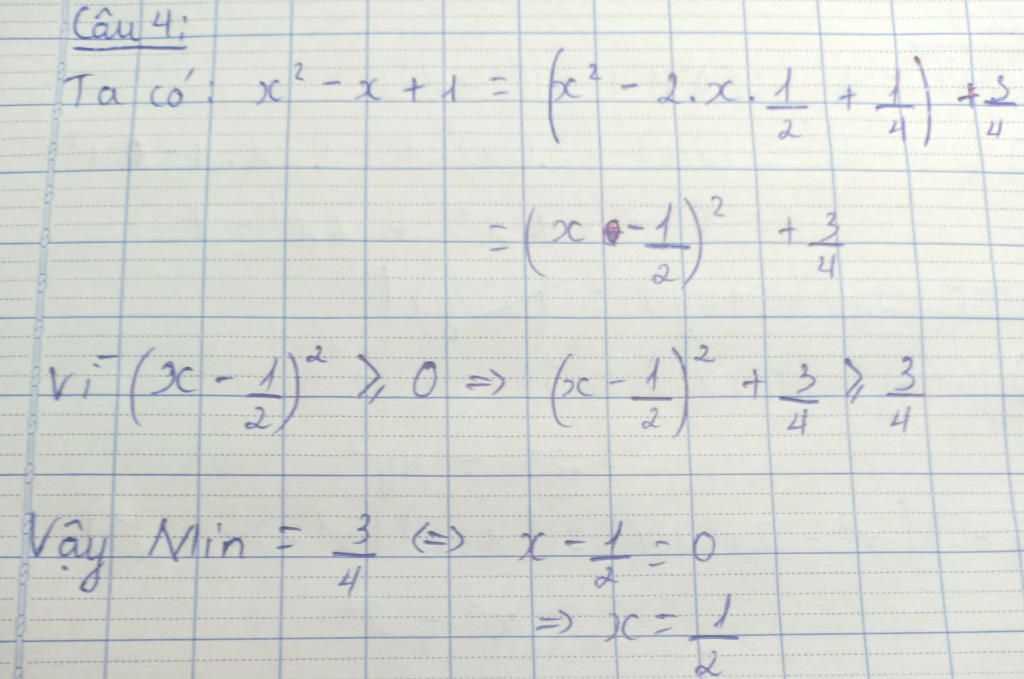 Câu 4:
Ta có: x² - x + 1 = (x² - 2.x.1/2 + 1/4) + 3/4
= (x - 1/2)² + 3/4
Vì (x - 1/2)² ⩾ 0 => (x - 1/2)² + 3/4 ⩾ 3/4
Vậy Min = 3/4 <=> x - 1/2 = 0
=> x = 1/2